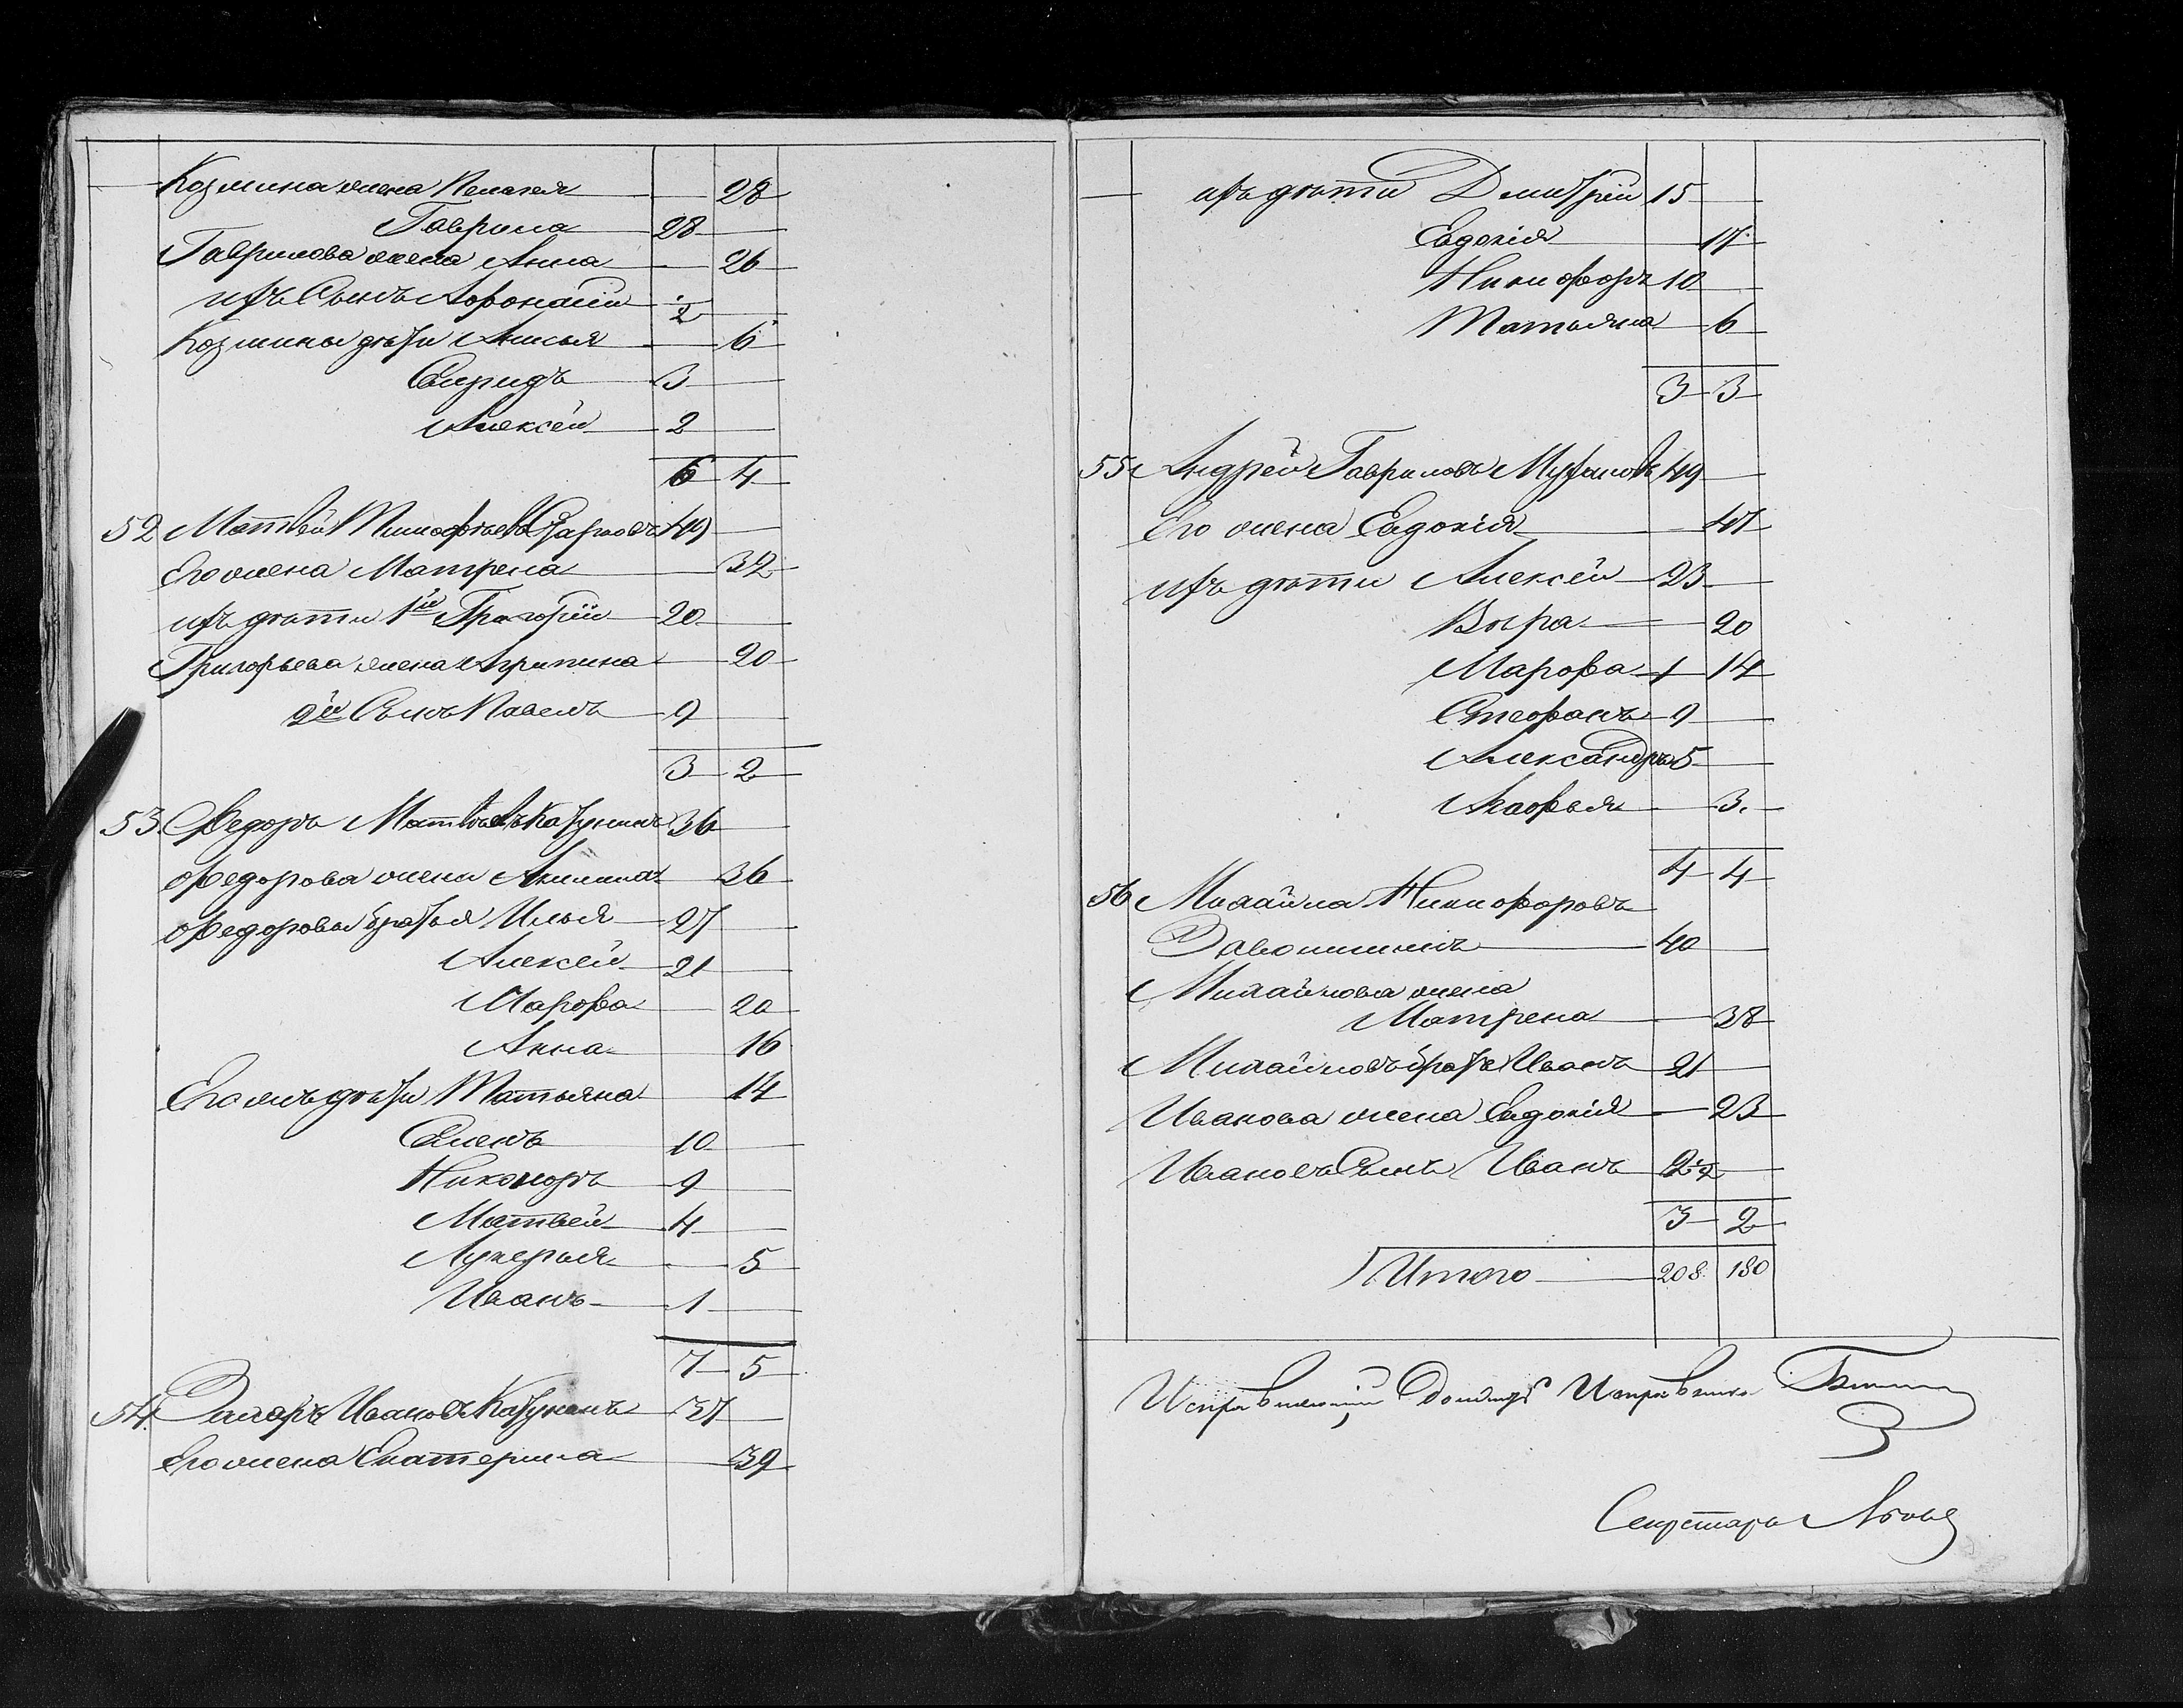 Козмина жена Пелагея 28
Гаврила 28
Гаврилова жена Анна 26
ихъ Сынъ Афонасiй ½
Козмины дѣти Анисья 6
Спиридъ 3
Алексѣй 2
6 4
52 Матвѣй Тимофѣевъ 49
Его жена Матрена 32
ихъ дѣти 1й Григорiй 20
Григорьева жена Агрипина 20
2й Сынъ Павелъ 9
3 2
53. Федоръ Матвѣевъ Катунинъ 36
Федорова жена Акилина 36
Федоровы братья Илья 27
Алексѣй 21
Марфа 20
Анна 16
Его жъ дѣти Татьяна 14
Семенъ 10
Никоноръ 9
Матвей 4
Лукерья 5
Иванъ 1
7 5
54. Иванов Катунинъ 37
Его жена Екатерина 39
ихъ дѣти Дмитрiй 15
Евдокiя 17
Никифоръ 10
Татьяна 6
3 3
55 Андрей Гавриловъ 49
Его жена Евдокiя 47
ихъ дѣти Алексѣй 23
Вѣра 20
Марфа 14
Стефанъ 9
Александръ 5
Агафья 3.
4 4
56 Михайла Никифоровъ
40
Михайлова жена
Матрена 38
Михайловъ братъ Иванъ 21
Иванова жена Евдокiя 23
Ивановъ Сынъ Иванъ ½
3 2
Итого 208. 180
Исправляющiй Должность Исправника
Секретарь